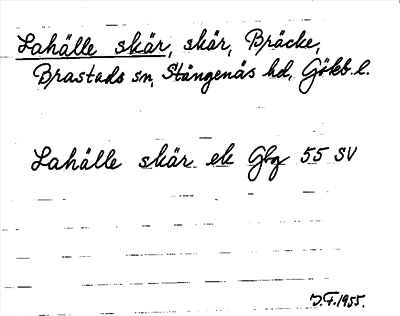 Lahälle skär, skär, Bräcke,
Brastads sn, Stångenäs hd, Gökb. l.
Lahälle skär ek Gbg 55 SV
J.F. 1955.